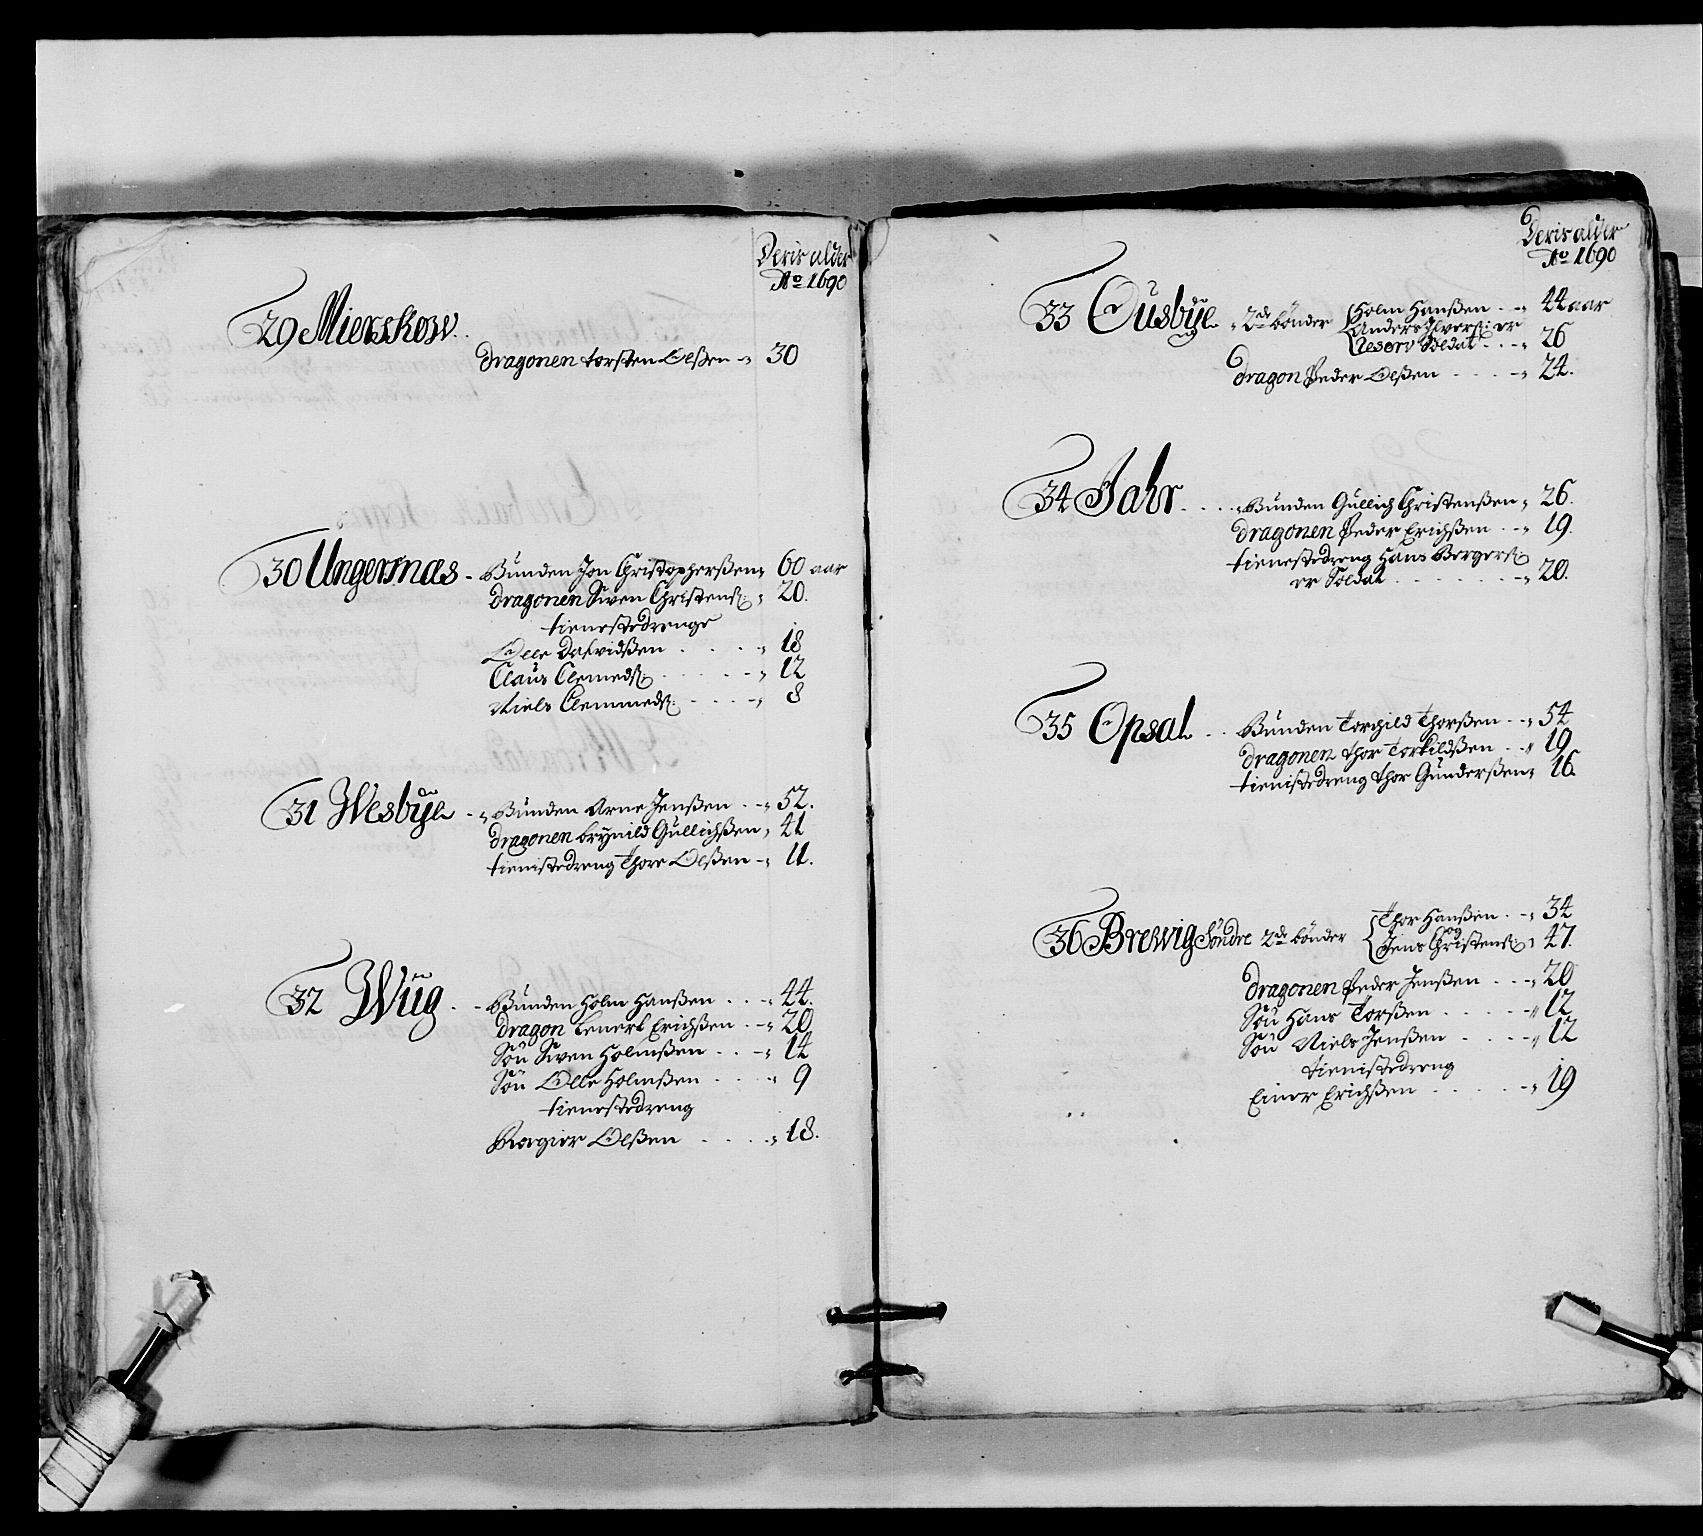 Deris alder
Ao 1690
29 Mierskow
dragonen torsten Olßen 30
30 Ungersnæs Bunden Jon Christopherßen 60 aar
dragonen Siven Christens: 20.
tienestedrenge
Olle Dafvidßen 18
Claus Clemeds: 12
Niels Clemmeds: 8
31 Wesbÿe Bunden Arne Jenßen 52.
dragonen brÿnild Gullichßen 41
tienistedreng Thore Olßen 11.
32 Wiig Bunden Holm Hanßen 44.
dragon Lenert Erichßen 20
Søn Siven Holmßen 14
Søn Olle Holmßen 9
tienestedreng
Olßen 18.
Deris alder
Ao 1690
33 Ousbÿe 2de bønder Holm Hanßen 44 aar
Anders Ilvers: er
Reserv Soldat 26
dragon Peder Olßen 24.
34 Jahr Bunden Gullich Christenßen 26.
dragonen Peder Erichßen 19.
tienestedreng Hans Bergers:
er Soldat 20.
35 Opsal Bunden Torchild Thorßen 54
dragonen Thor Torkildßen 19
tienistedreng Thor Gunderßen 16.
36 Brewig Søndre 2de bønder Thor Hanßen 34
og
Jens Christens: 47.
dragonen Peder Jenßen 20
Søn Hans Torßen 12
Søn Niels Jenßen 12
tienistedreng
Einer Erichßen 19